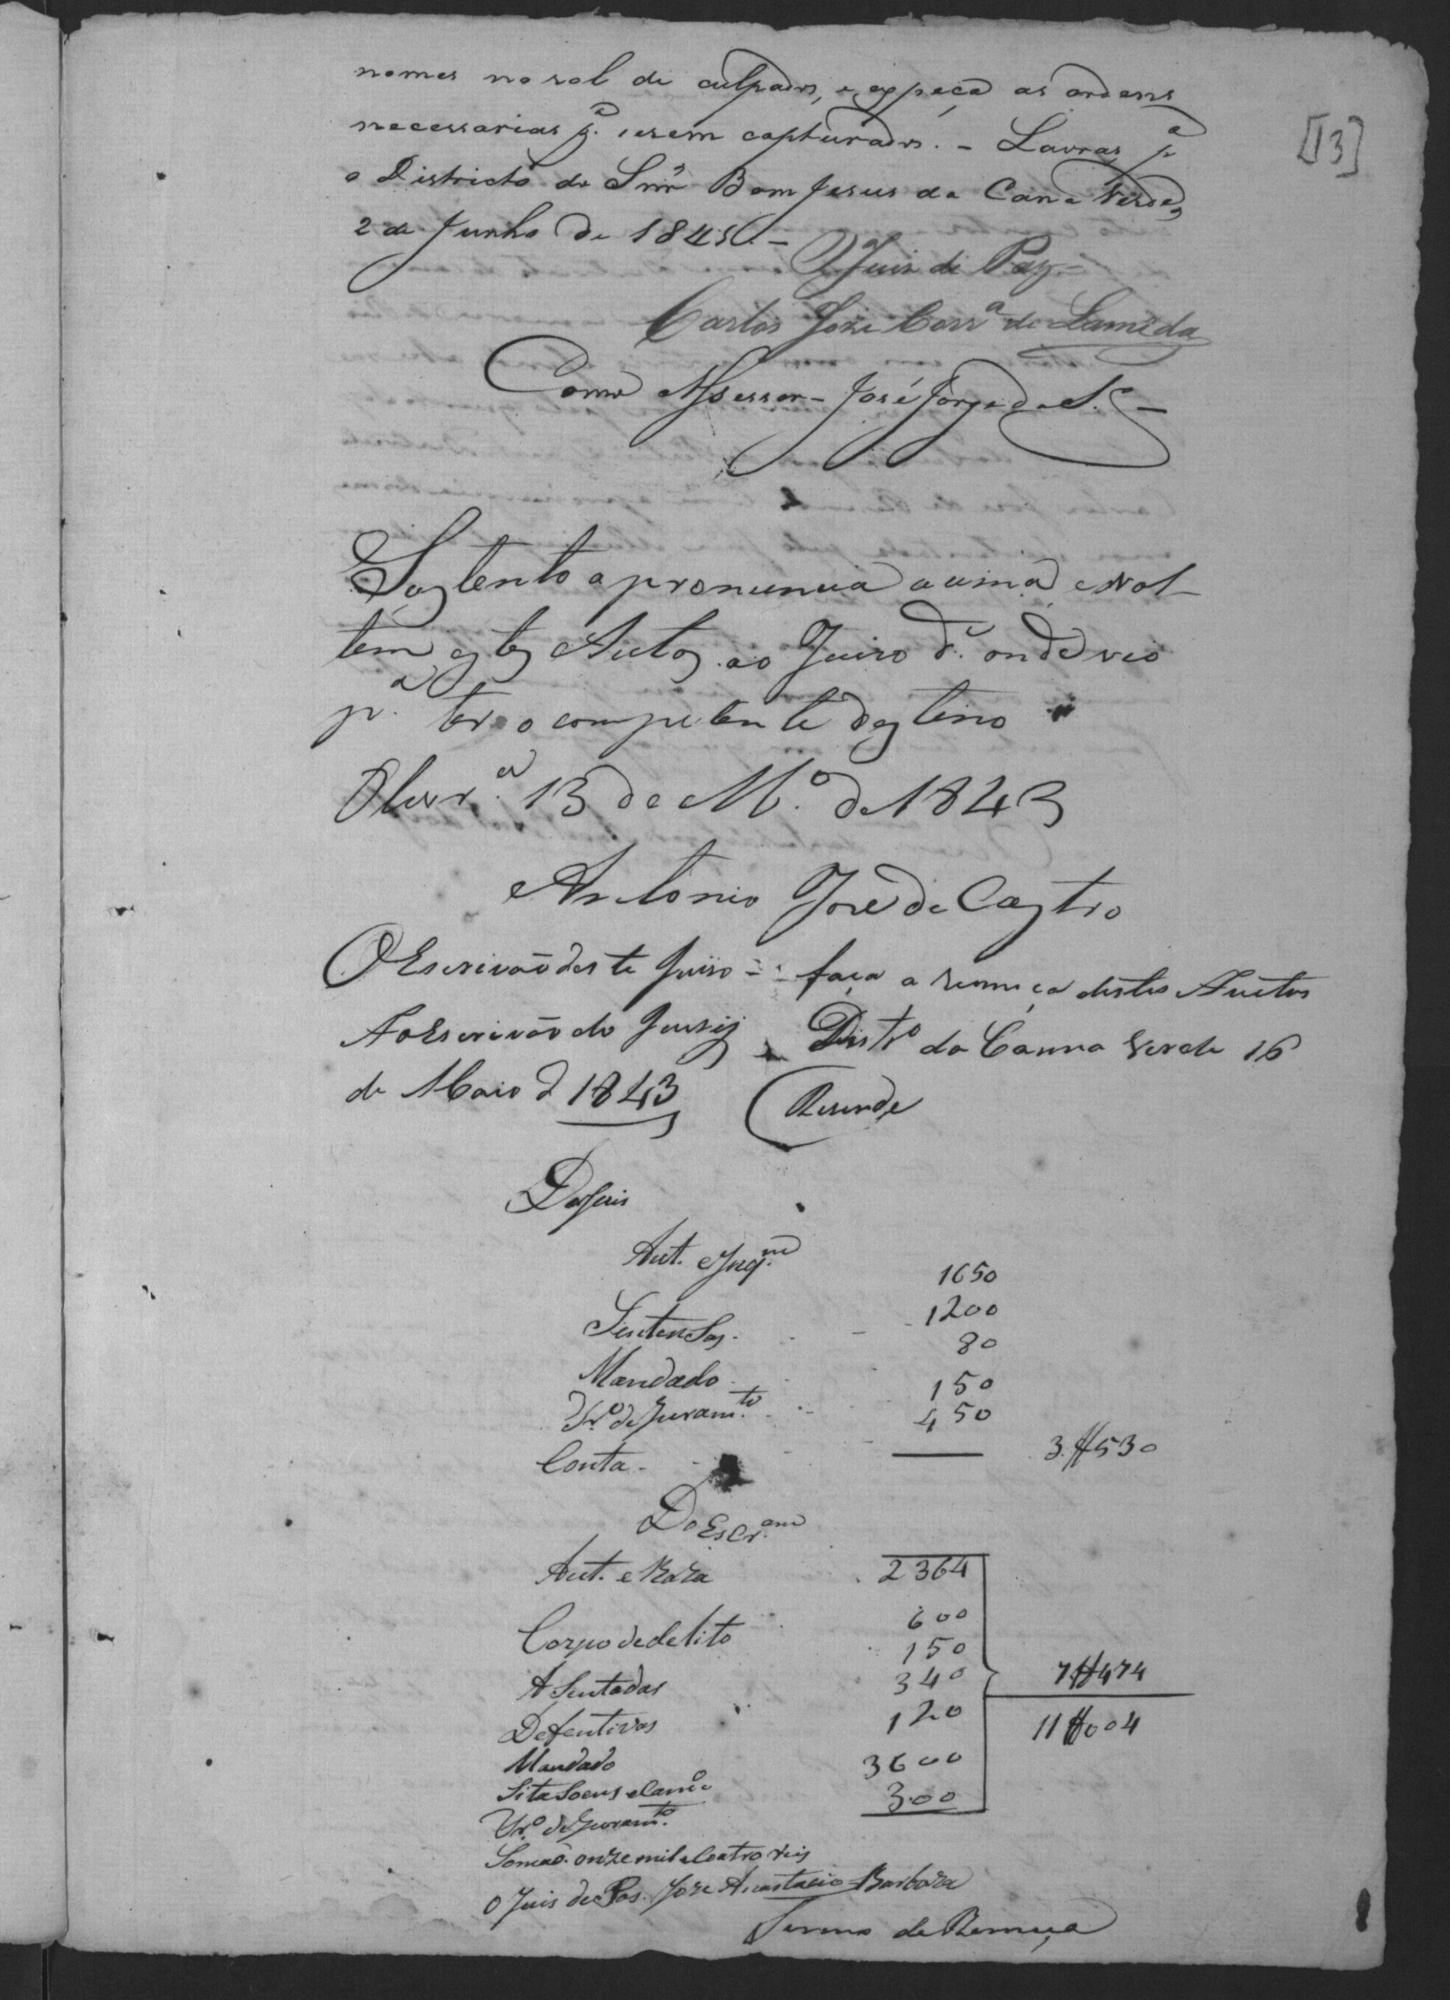 [13]
nomes no rol de culpados, e expeça as ordens
necessarias p.ª serem capturados. - Lavras p.ª
o Districto do Snr Bom Jesus da Cana Verde,
2 de Junho de 184 -
O Juiz de Paz
Carlos Joze Corr.ª de Lameda
Como Assessor - José Jorge da S.ª -
Sustento a pronuncia acima, e Vol-
tem estes Autos ao Juizo d' onde veio
p.ª ter o competente destino
Olivr.ª 13 de M.º de 1843
Antonio José de Castro
O Escrivão deste Juizo faça a remeça destes Auctos
Ao Escrivão do Jury Distr.º da Canna Verde 16
de Maio d 1843 Resende
Do Juis
Aut. e Inq.m 1650
Sentensas. 1200
80
Mandado 150
Tr.º de Juram.to 450
Conta - 3#530
Do Escr.am
Aut. e Raza 2364
Corpo de delito 600
Asentadas 150
Defentivas 340
Mandado 120
Sitasoens e Cam.º 3600
Tr.º de Juram.to 300
7#474
11#004
Somão onze mil e Coatro reis
O Juis de Pas. Joze Anastacio Barboza
Termo de Remeça